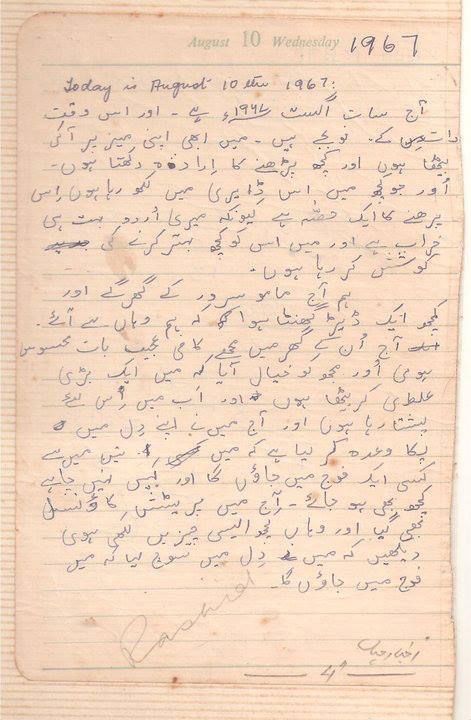 August 10 Wednesday 1967
Today is August 10th 1967:
آج سات اگست ۱۹۶۷ء ہے - اور اس وقت
رات کے نو بجے ہیں - میں ابھی اپنی میز پر آ کر
بیٹھا ہوں اور کچھ پڑھنے کا ارادہ رکھتا ہوں -
اُور جو کچھ میں اس ڈایری میں لکھ رہا ہوں اِس
پڑھنے کا ایک حصّہ ہے کیونکہ میری اُردو بہت ہی
خراب ہے اور میں اس کو کچھ بہتر کرنے کی
کوشش کر رہا ہوں۔
ہم آج مامو سرور کے گھر گے اور
کچھ ایک ڈیڑ گھنٹا ہوا کہ ہم وہاں سے آئے۔
آج اُن کے گھر میں مجھے کافی عجیب بات محسوس
ہوی اُور مجھ کو خیال آیا کہ میں ایک بڑی
غلطی کر بیٹھا ہوں اور اَب میں اِس لئے
رہا ہوں اور آج میں نے اپنے دِل میں
پکا وعدہ کر لیا ہے کہ میں تین میں سے
کسی ایک فوج میں جاؤں گا اور نہیں چاہے
کچھ بھی ہو جائے - آج میں برٹیش کاؤنسل
بھی گیا اور وہاں کچھ ایسی چیزیں لکھی ہوی
دیکھیں کہ میں دِل میں سوچ لیا کہ میں
فوج میں جاؤں گا۔
Rashid